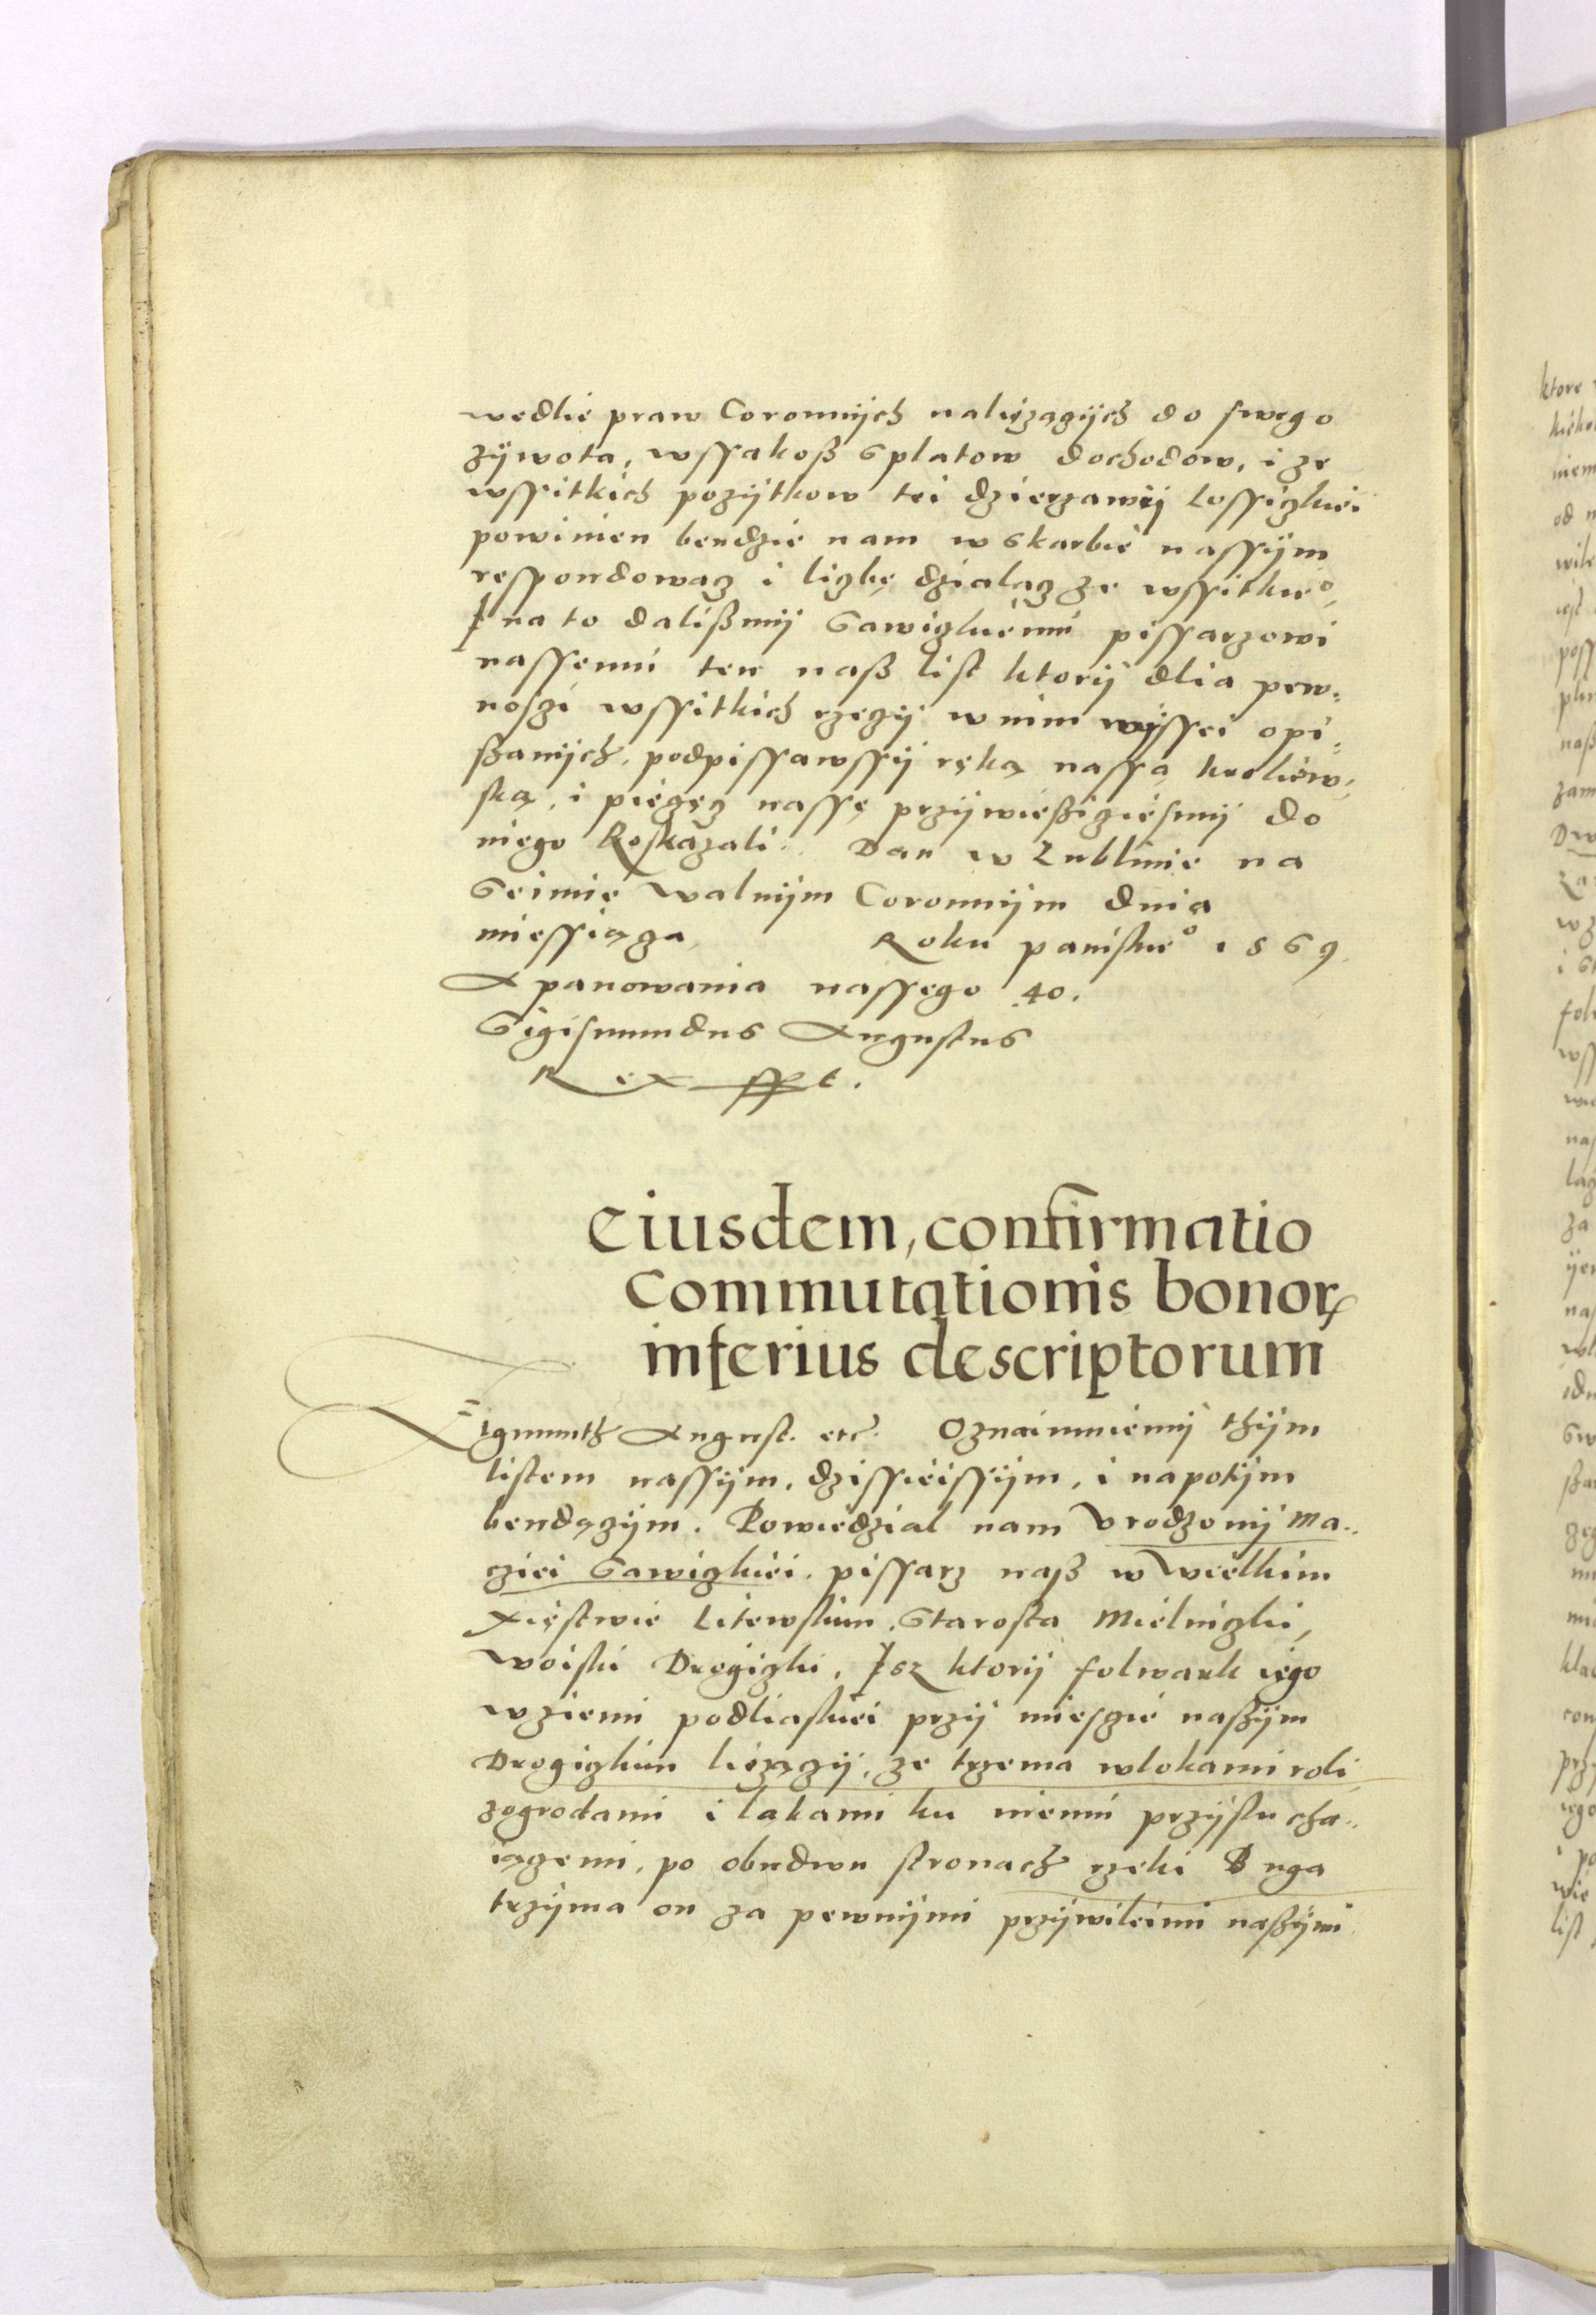 wedlie praw Coronnijch naliężączijch do swego
zijwota, wssakoß splatow dochodow, i ze
wssitkich pozijtkow tei dzierzawij Lossiczkiei
powinien bendzie nam w skarbie nassijm
respondowacz i liczbę dzialacz ze wssitkie°,
I na to dalißmij Sawiczkiemu pissarzowi
nassemu ten naß list ktorij dlia pew:
nosczi wssitkich rzeczij w nim wijssei opi:
ßanijch, podpissawssij ręką nassą kroliew:
ską, i pieczęcz nassę przijwießicziesmij do
niego Roskazali. Dan w Lublinie na
Seimie Walnijm Coronnijm dnia
miessiącza Roku paniskie° 1569
A panowania nassego 40.
Sigismundus Augustus
Rex sspt.
Eiusdem, confirmatio
Commutationis bonoꝝ
inferius descriptorum
Zigmunth August. etc. Oznaimuiemij thijm
listem nassijm, dzissieissijm, i napotijm
bendączijm. Powiedzial nam Vrodzonij Ma..
cziei Sawiczkiei. pissarz naß w Wielkim
Xięstwie Litewskim, Starosta Mielniczki,
Woiski Drogiczki, Isz ktorij folwark iego
w ziemi podliaskiei przij miesczie naßijm
Drogiczkim liężączij, ze trzema wlokami roli
zogrodami i lakami ku niemu przijslucha..
iączemi, po obudwu stronach rzeki Buga
trzijma on za pewnijmi przijwileimi naßijmi